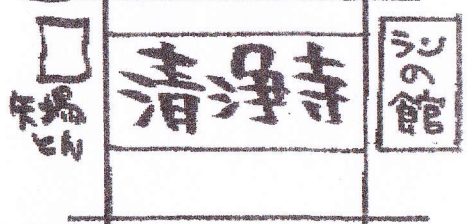 矢場
とん
清浄寺
ランの
館